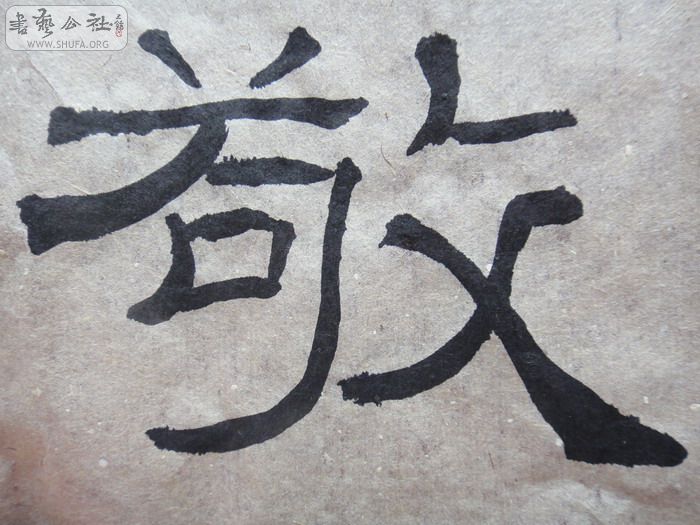 書藝公社
WWW.SHUFA.ORG
敬